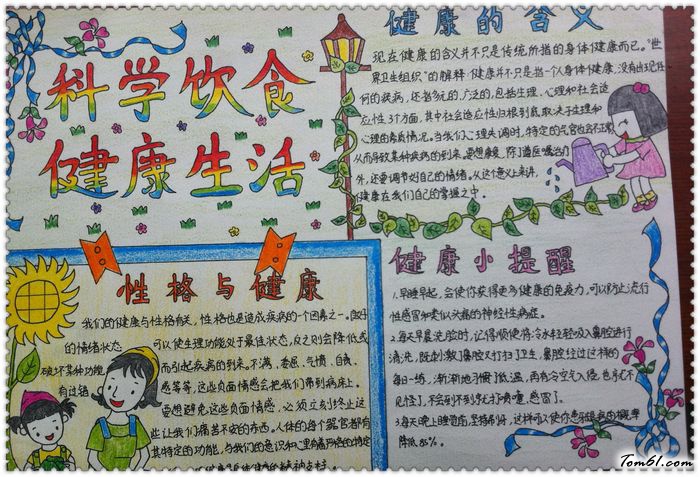 科学饮食
健康生活
健康的含义
现在健康的含义并不只是传统所指的身体健康而已。"世
界卫生组织"的解释:健康并不只是指一个人身体健康,没有出现任
何的疾病,还指多元的、广泛的,包括生理、心理和社会适
应性3个方面,其中社会适应性归根到底取决于生理和
心理的素质情况。当我们心理失调时,特定的气官也会不正常
从而导致某种疾病的到来。要想康复,除了遵医嘱治疗
外,还要调节好自己的情绪。从这个意义上来讲,
健康在我们自己的掌握之中。
性格与健康
我们的健康与性格有关,性格也是造成疾病的个因毒之一。良好
的情绪状态 可以使生理功能处于最佳状态,反之则会降低或
破坏某种功能 而引起疾病的到来。不满、委屈、气愤、自卑、
有过错 感等等,这些负面情感会把我们带到病床上。
要想避免这些负面情感,必须立刻终止这
些让我们痛苦不安的东西。人体的每个器官都有
其特定的功能,与我们的意识和
健康小提醒
1.早睡早起,会使你获得更多健康的免疫力,可以防止流行
性感冒和类似头痛的神经性病症。
2.每天早晨洗脸时,记得顺便将冷水轻轻吸入鼻腔进行
清洗,既刺激鼻腔又打扫卫生,鼻腔经过这样的
每日一练,渐渐地习惯了低温,再有冷空气入侵,也就见
怪了,不会动不动就打喷嚏,感冒了。
3.每天晚上睡觉前,坚持刷牙,这样可以使你患的概率
降低85%。
Tom61.com